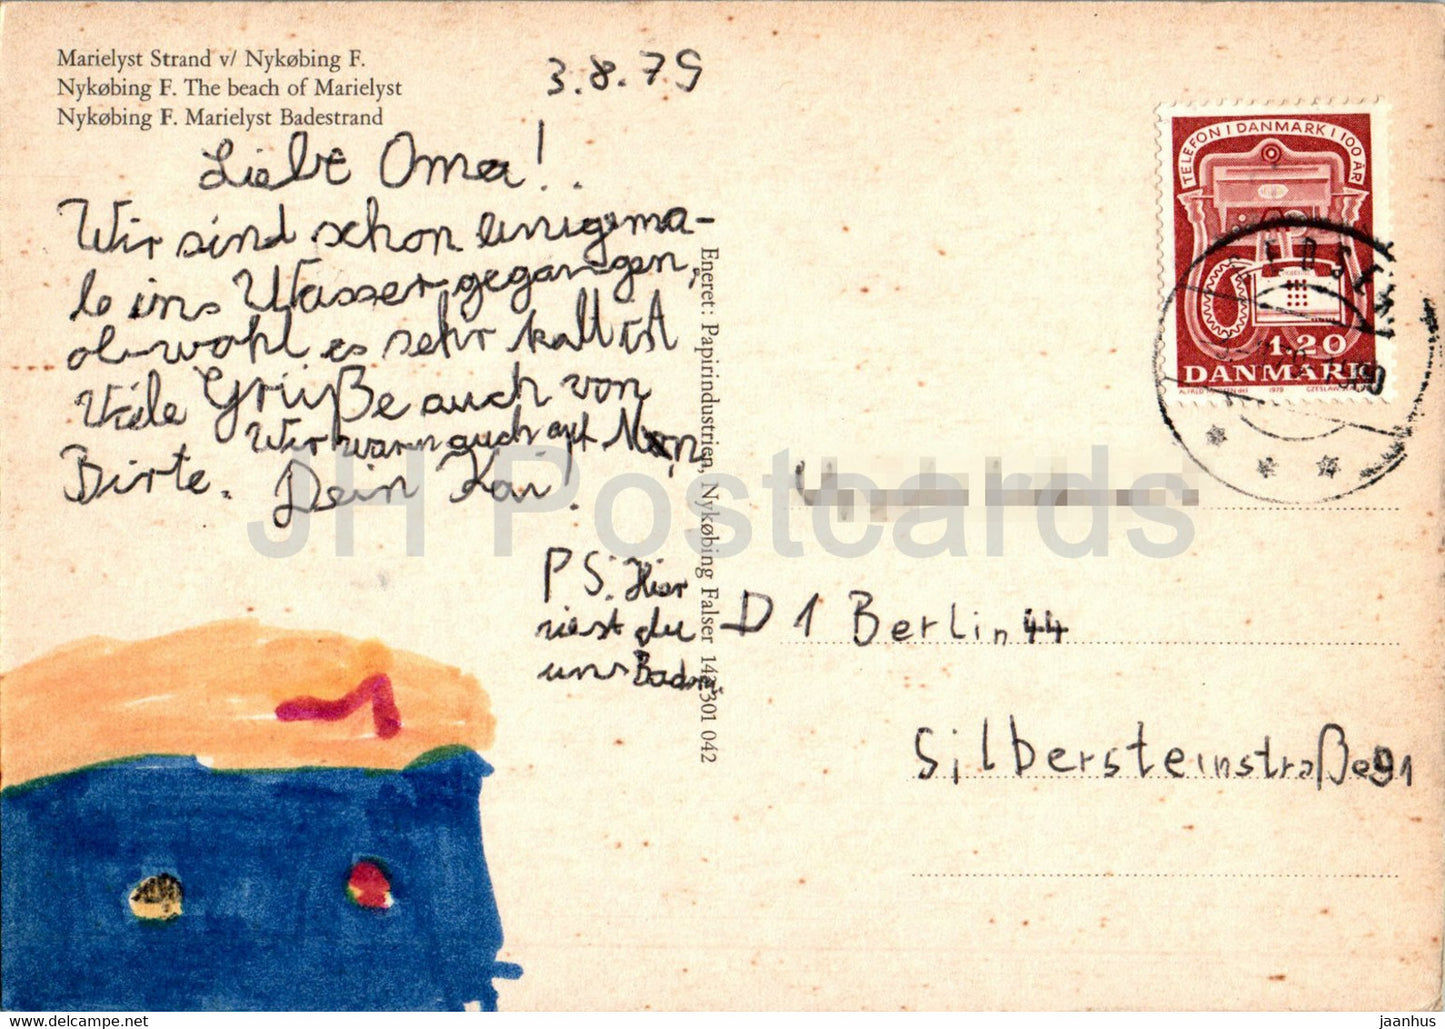 Marielyst Strand v/ Nykøbing F.
Nykøbing F. The beach of Marielyst
Nykøbing F. Marielyst Badestrand
3.8.79
Liebe Oma!
Wir sind schon einigema-
le ins Wasser gegangen,
obwohl es sehr kalt ist
Viele Grüße auch von
Wir waren auch auf
Birte. Dein Kai!
PS. Hier
siest du
uns Baden
Eneret: Papirindustrien, Nykøbing Falser 142301 042
TELEFON I DANMARK I 100 ÅR
1.20
DANMARK
1979
D 1 Berlin 44
Silbersteinstraße 91
JH Postcards
hippostcard.com/store/jaanhus
jaanhus